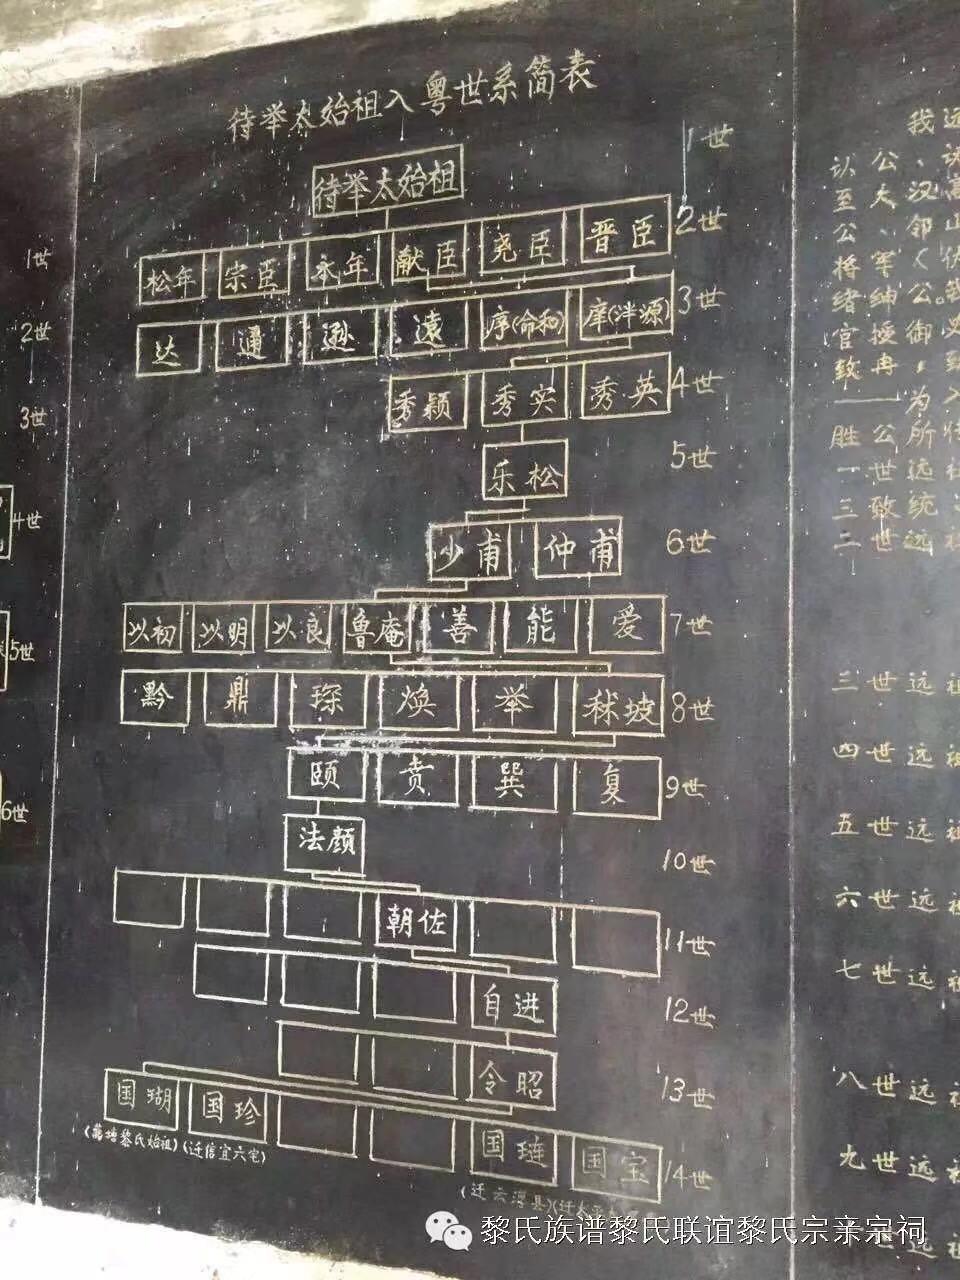 待举太始祖入粤世系简表
待举太始祖 1世
松年 宗臣 本年 献臣 尧臣 晋臣 2世
达 通 逊 遠 序(命和) 庠(泮源) 3世
秀颖 秀实 秀英 4世
乐松 5世
少甫 仲甫 6世
以初 以明 以良 鲁庵 善 能 爱 7世
黔 鼎 琛 焕 举 秫坡 8世
颐 贲 巽 复 9世
法颜 10世
朝佐 11世
自进 12世
令昭 13世
国瑚 国珍 国琏 国宝 14世
黎氏始祖) (迁信宜六宅)
(迁云浮县)
1世
2世
3世
4世
5世
6世
我远
认公、
至大汉高
公、邻山
将军
绪绅公
官授御
致冉,
一一为入
胜公所
一世远
三敬统
二世远祖
三世远祖
四世远祖
五世远祖
六世远祖
七世远祖
八世远祖
九世远祖
世远祖
黎氏族谱黎氏联谊黎氏宗亲宗祠